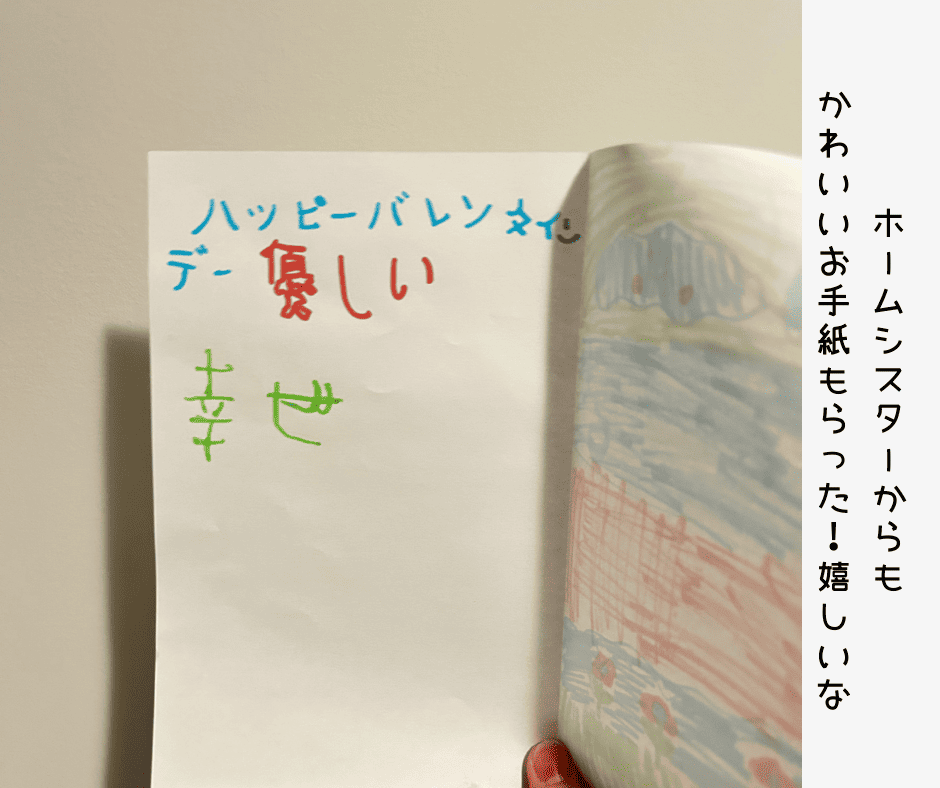 ハッピーバレンタイ
デー 優しい
幸せ
ホームシスターからも
かわいいお手紙もらった!嬉しいな